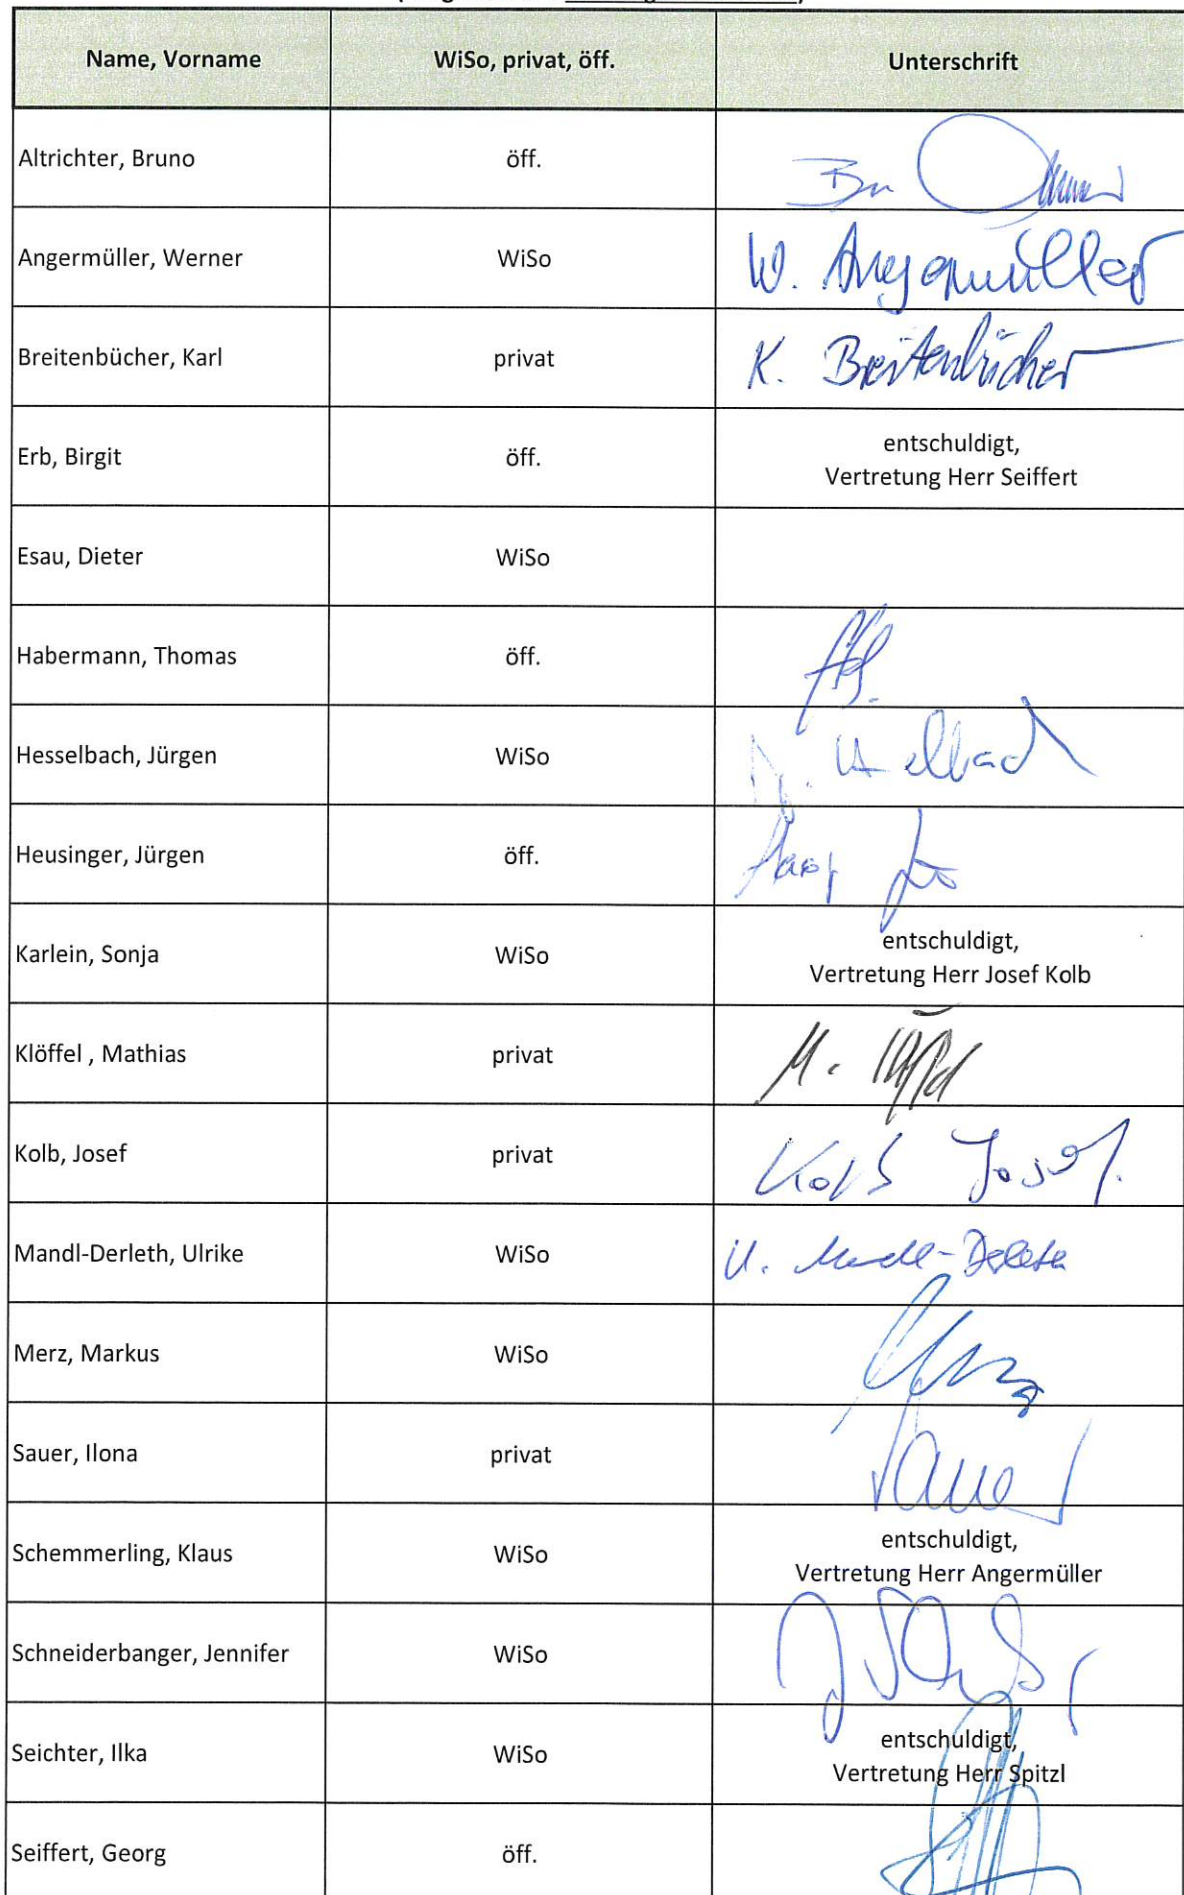 Name, Vorname WiSo, privat, öff. Unterschrift
Altrichter, Bruno öff.
Angermüller, Werner WiSo W. Angermüller
Breitenbücher, Karl privat K. Breitenbücher
Erb, Birgit öff. entschuldigt,
Vertretung Herr Seiffert
Esau, Dieter WiSo
Habermann, Thomas öff.
Hesselbach, Jürgen WiSo
Heusinger, Jürgen öff.
Karlein, Sonja WiSo entschuldigt,
Vertretung Herr Josef Kolb
Klöffel , Mathias privat
Kolb, Josef privat Kolb Josef
Mandl-Derleth, Ulrike WiSo U. Mandl-Derleth
Merz, Markus WiSo
Sauer, Ilona privat Sauer
Schemmerling, Klaus WiSo entschuldigt,
Vertretung Herr Angermüller
Schneiderbanger, Jennifer WiSo
Seichter, Ilka WiSo entschuldigt,
Vertretung Herr Spitzl
Seiffert, Georg öff.